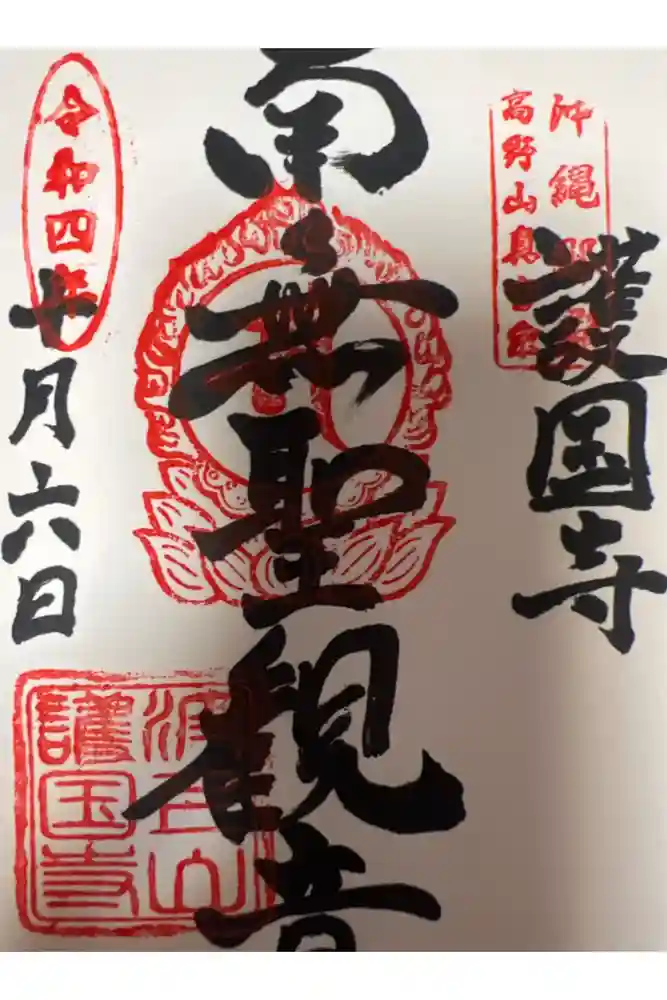 沖縄
高野山真
護国寺
南無聖観音
令和四年
十月六日
波上山
護国寺